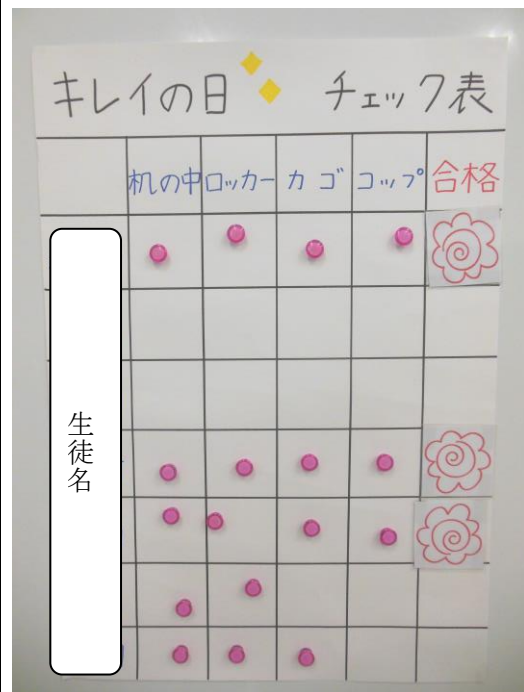 キレイの日 チェック表
机の中 ロッカー カゴ コップ 合格
生徒名